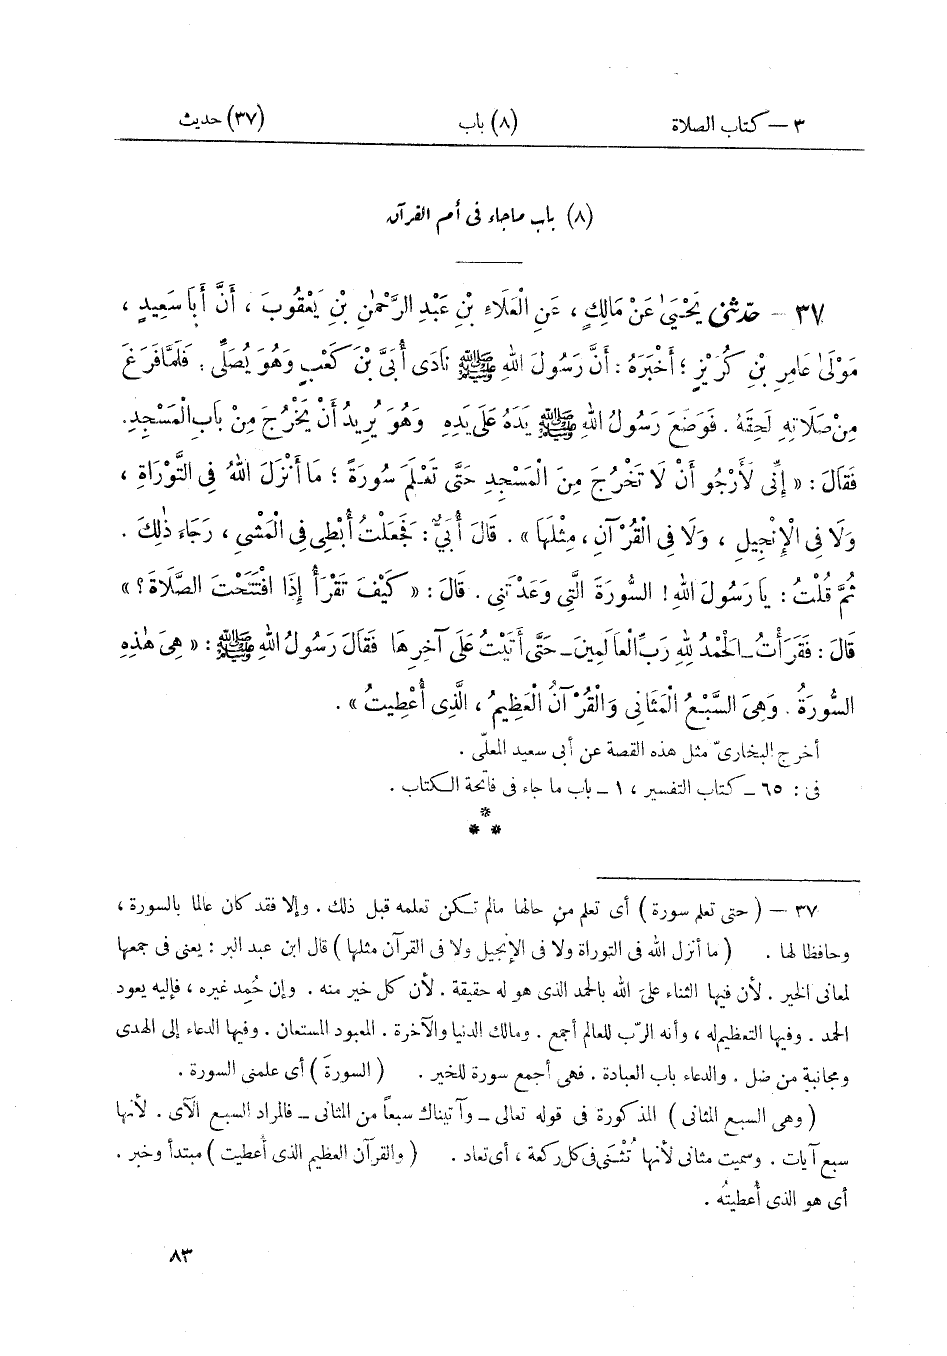 ٣ – كتاب الصلاة (٨) باب (٣٧) حديث
(٨) باب ماجاء فى أم القرآن
٣٧ – حَدَّثَنِي يَحْيَىٰ عَنْ مَالِكٍ ، عَنِ الْعَلَاءِ بْنِ عَبْدِ الرَّحْمٰنِ بْنِ يَعْقُوبَ ، أَنَّ أَبَا سَعِيدٍ ،
مَوْلَىٰ عَامِرِ بْنِ كُرَيْزٍ ؛ أَخْبَرَهُ : أَنَّ رَسُولَ اللهِ ﷺ نَادَى أُبَيَّ بْنَ كَعْبٍ وَهُوَ يُصَلِّى . فَلَمَّا فَرَغَ
مِنْ صَلَاتِهِ لَحِقَهُ . فَوَضَعَ رَسُولُ اللهِ ﷺ يَدَهُ عَلَى يَدِهِ وَهُوَ يُرِيدُ أَنْ يَخْرُجَ مِنْ بَابِ الْمَسْجِدِ.
فَقَالَ : « إِنِّى لَأَرْجُو أَنْ لَا تَخْرُجَ مِنَ الْمَسْجِدِ حَتَّى تَعْلَمَ سُورَةً ؛ مَا أَنْزَلَ اللهُ فِى التَّوْرَاةِ ،
وَلَا فِى الْإِنْجِيلِ ، وَلَا فِى الْقُرْآنِ ، مِثْلَهَا » . قَالَ أُبَيٌّ : فَجَعَلْتُ أُبْطِى فِى الْمَشْىِ ، رَجَاءَ ذٰلِكَ .
ثُمَّ قُلْتُ : يَا رَسُولَ اللهِ ! السُّورَةَ الَّتِى وَعَدْتَنِى . قَالَ : « كَيْفَ تَقْرَأُ إِذَا افْتَتَحْتَ الصَّلَاةَ ؟ »
قَالَ : فَقَرَأْتُ ــ الْحَمْدُ لِلهِ رَبِّ الْعَالَمِينَ ــ حَتَّى أَتَيْتُ عَلَى آخِرِهَا فَقَالَ رَسُولُ اللهِ ﷺ : « هِىَ هٰذِهِ
السُّورَةُ . وَهِىَ السَّبْعُ الْمَثَانِى وَالْقُرْآنُ الْعَظِيمُ ، الَّذِى أُعْطِيتُ » .
أخرج البخارىّ مثل هذه القصة عن أبى سعيد المعلّى .
فى : ٦٥ ــ كتاب التفسير ، ١ ــ باب ما جاء فى فاتحة الكتاب .
*
* *
٣٧ – ( حتى تعلم سورة ) أى تعلم من حالها مالم تكن تعلمه قبل ذلك . وإلا فقد كان عالما بالسورة ،
وحافظا لها . ( ما أنزل الله فى التوراة ولا فى الإنجيل ولا فى القرآن مثلها ) قال ابن عبد البر : يعنى فى جمعها
لمعانى الخير . لأن فيها الثناء على الله بالحمد الذى هو له حقيقة . لأن كل خير منه . وإن حُمِد غيره ، فإليه يعود
الحمد . وفيها التعظيم له ، وأنه الربّ للعالم أجمع . ومالك الدنيا والآخرة . المعبود المستعان . وفيها الدعاء إلى الهدى
ومجانبة من ضل . والدعاء باب العبادة . فهى أجمع سورة للخير . ( السورةَ ) أى علمنى السورة .
( وهى السبع المثانى ) المذكورة فى قوله تعالى ــ وآتيناك سبعاً من المثانى ــ فالمراد السبع الآى . لأنها
سبع آيات . وسميت مثانى لأنها تُثْنَى فى كل ركعة ، أى تعاد . ( والقرآن العظيم الذى أعطيت ) مبتدأ وخبر .
أى هو الذى أُعطيتُه .
٨٣